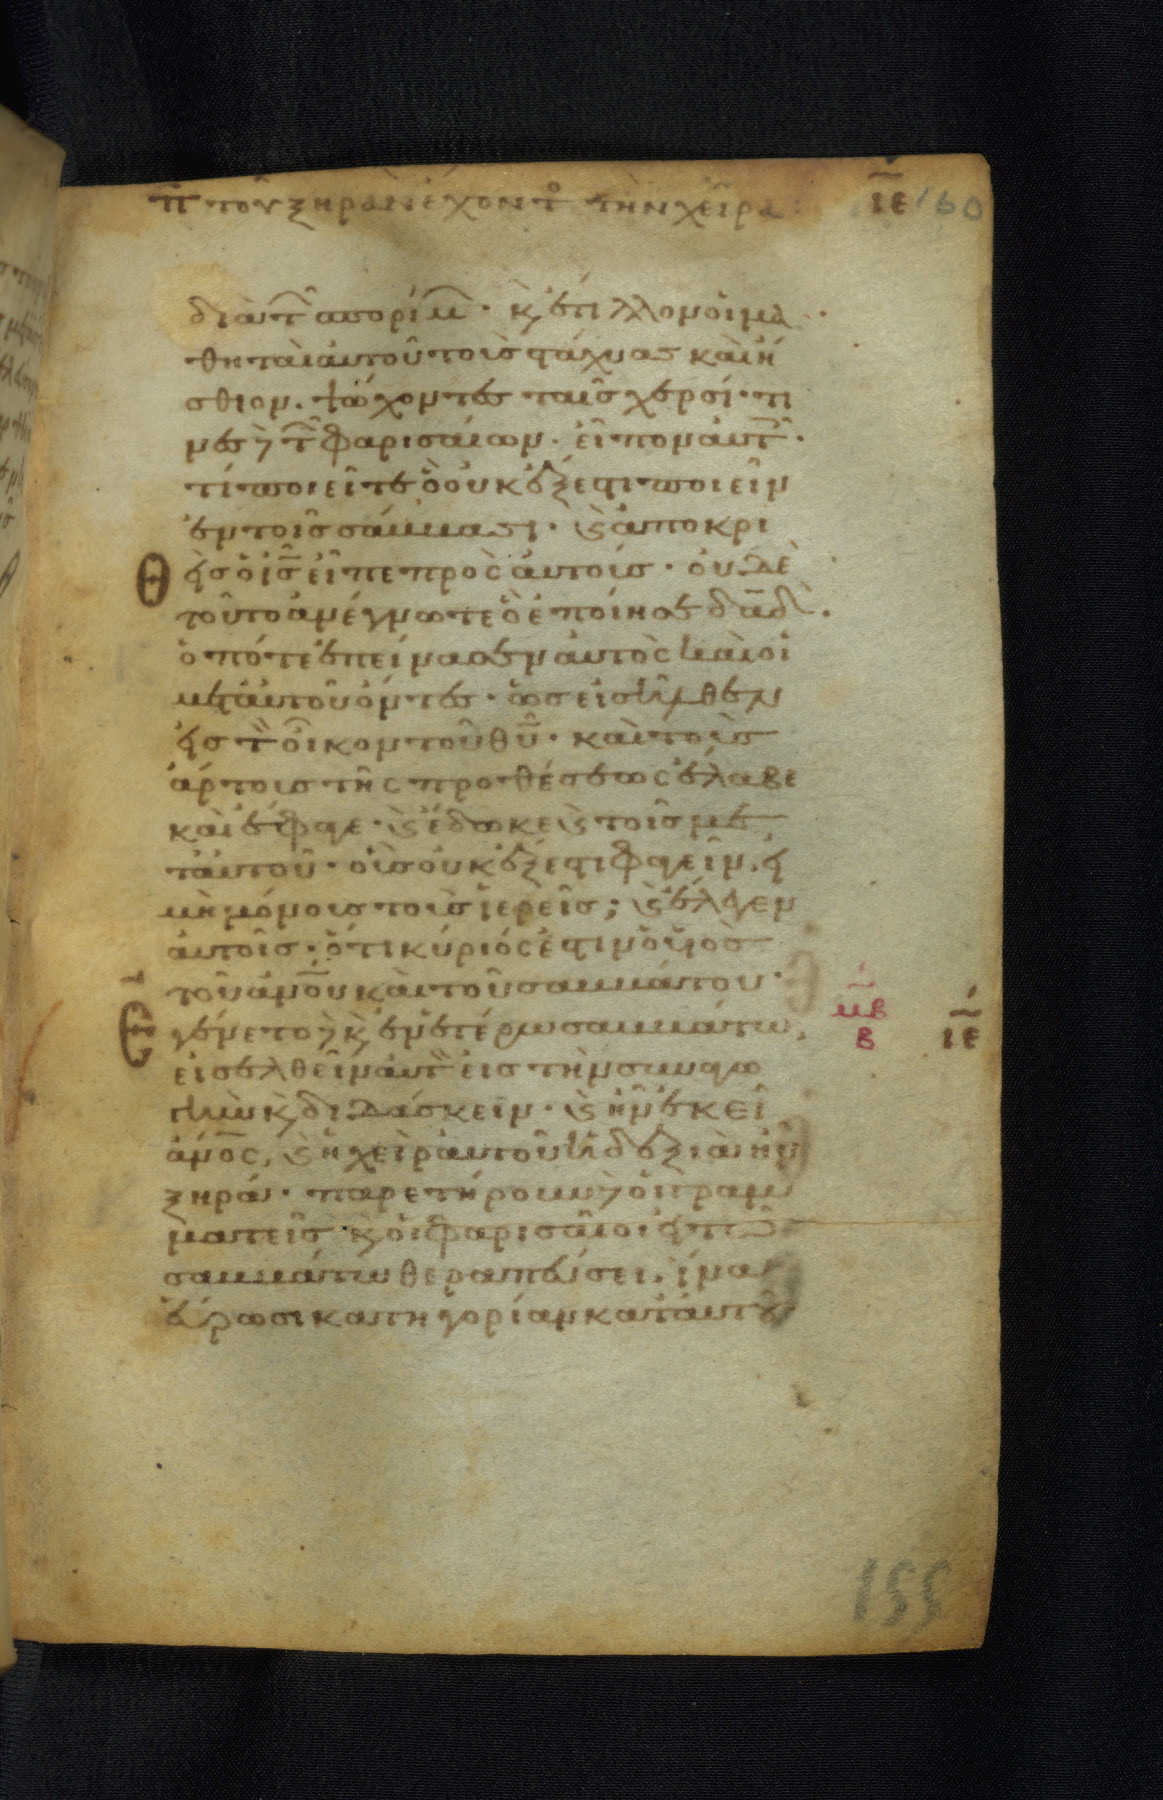 πε τοῦ ξηρὰν ἔχοντος τὴν χεῖρα ιε 160
διὰ τῶν σπορίμων· κ ἔτιλλον οἱ μα
θηταὶ αὐτοῦ τοὺς στάχυας καὶ ἤ
σθιον. ψώχοντες ταῖς χερσί· τι
νὲς δὲ τῶν φαρισαίων. εἶπον αὐτοῖς·
τί ποιεῖτε ὃ οὐκ ἔξεστι ποιεῖν
ἐν τοῖς σάββασι· κ ἀποκρι
θεὶς ὁ ις εἶπε πρὸς αὐτούς· οὐδὲ
τοῦτο ἀνέγνωτε ὃ ἐποίησε δαδ.
ὁπότε ἐπείνασεν αὐτὸς καὶ οἱ
μετ αὐτοῦ ὄντες· ὡς εἰσῆλθεν
εἰς τὸν οἶκον τοῦ θυ· καὶ τοὺς
ἄρτους τῆς προθέσεως ἔλαβε
καὶ ἔφαγε· κ ἔδωκε κ τοῖς με
τ αὐτοῦ· οὓς οὐκ ἔξεστι φαγεῖν. εἰ
μὴ μόνους τοὺς ἱερεῖς; κ ἔλεγεν
αὐτοῖς· ὅτι κύριός ἐστιν ὁ υἱὸς
τοῦ ανου καὶ τοῦ σαββάτου·
Ἐγένετο δὲ κ ἐν ἑτέρω σαββάτω, μβ β ιε
εἰσελθεῖν αὐτὸν εἰς τὴν συναγω
γὴν κ διδάσκειν· κ ἦν ἐκεῖ
ανος, κ ἡ χεὶρ αὐτοῦ ἡ δεξιὰ ἦν
ξηρά· παρετήρουν δὲ οἱ γραμ
ματεῖς κ οἱ φαρισαῖοι εἰ ἐν τῶ
σαββάτω θεραπεύσει. ἵνα
εὕρωσι κατηγορίαν κατ αὐτοῦ
155